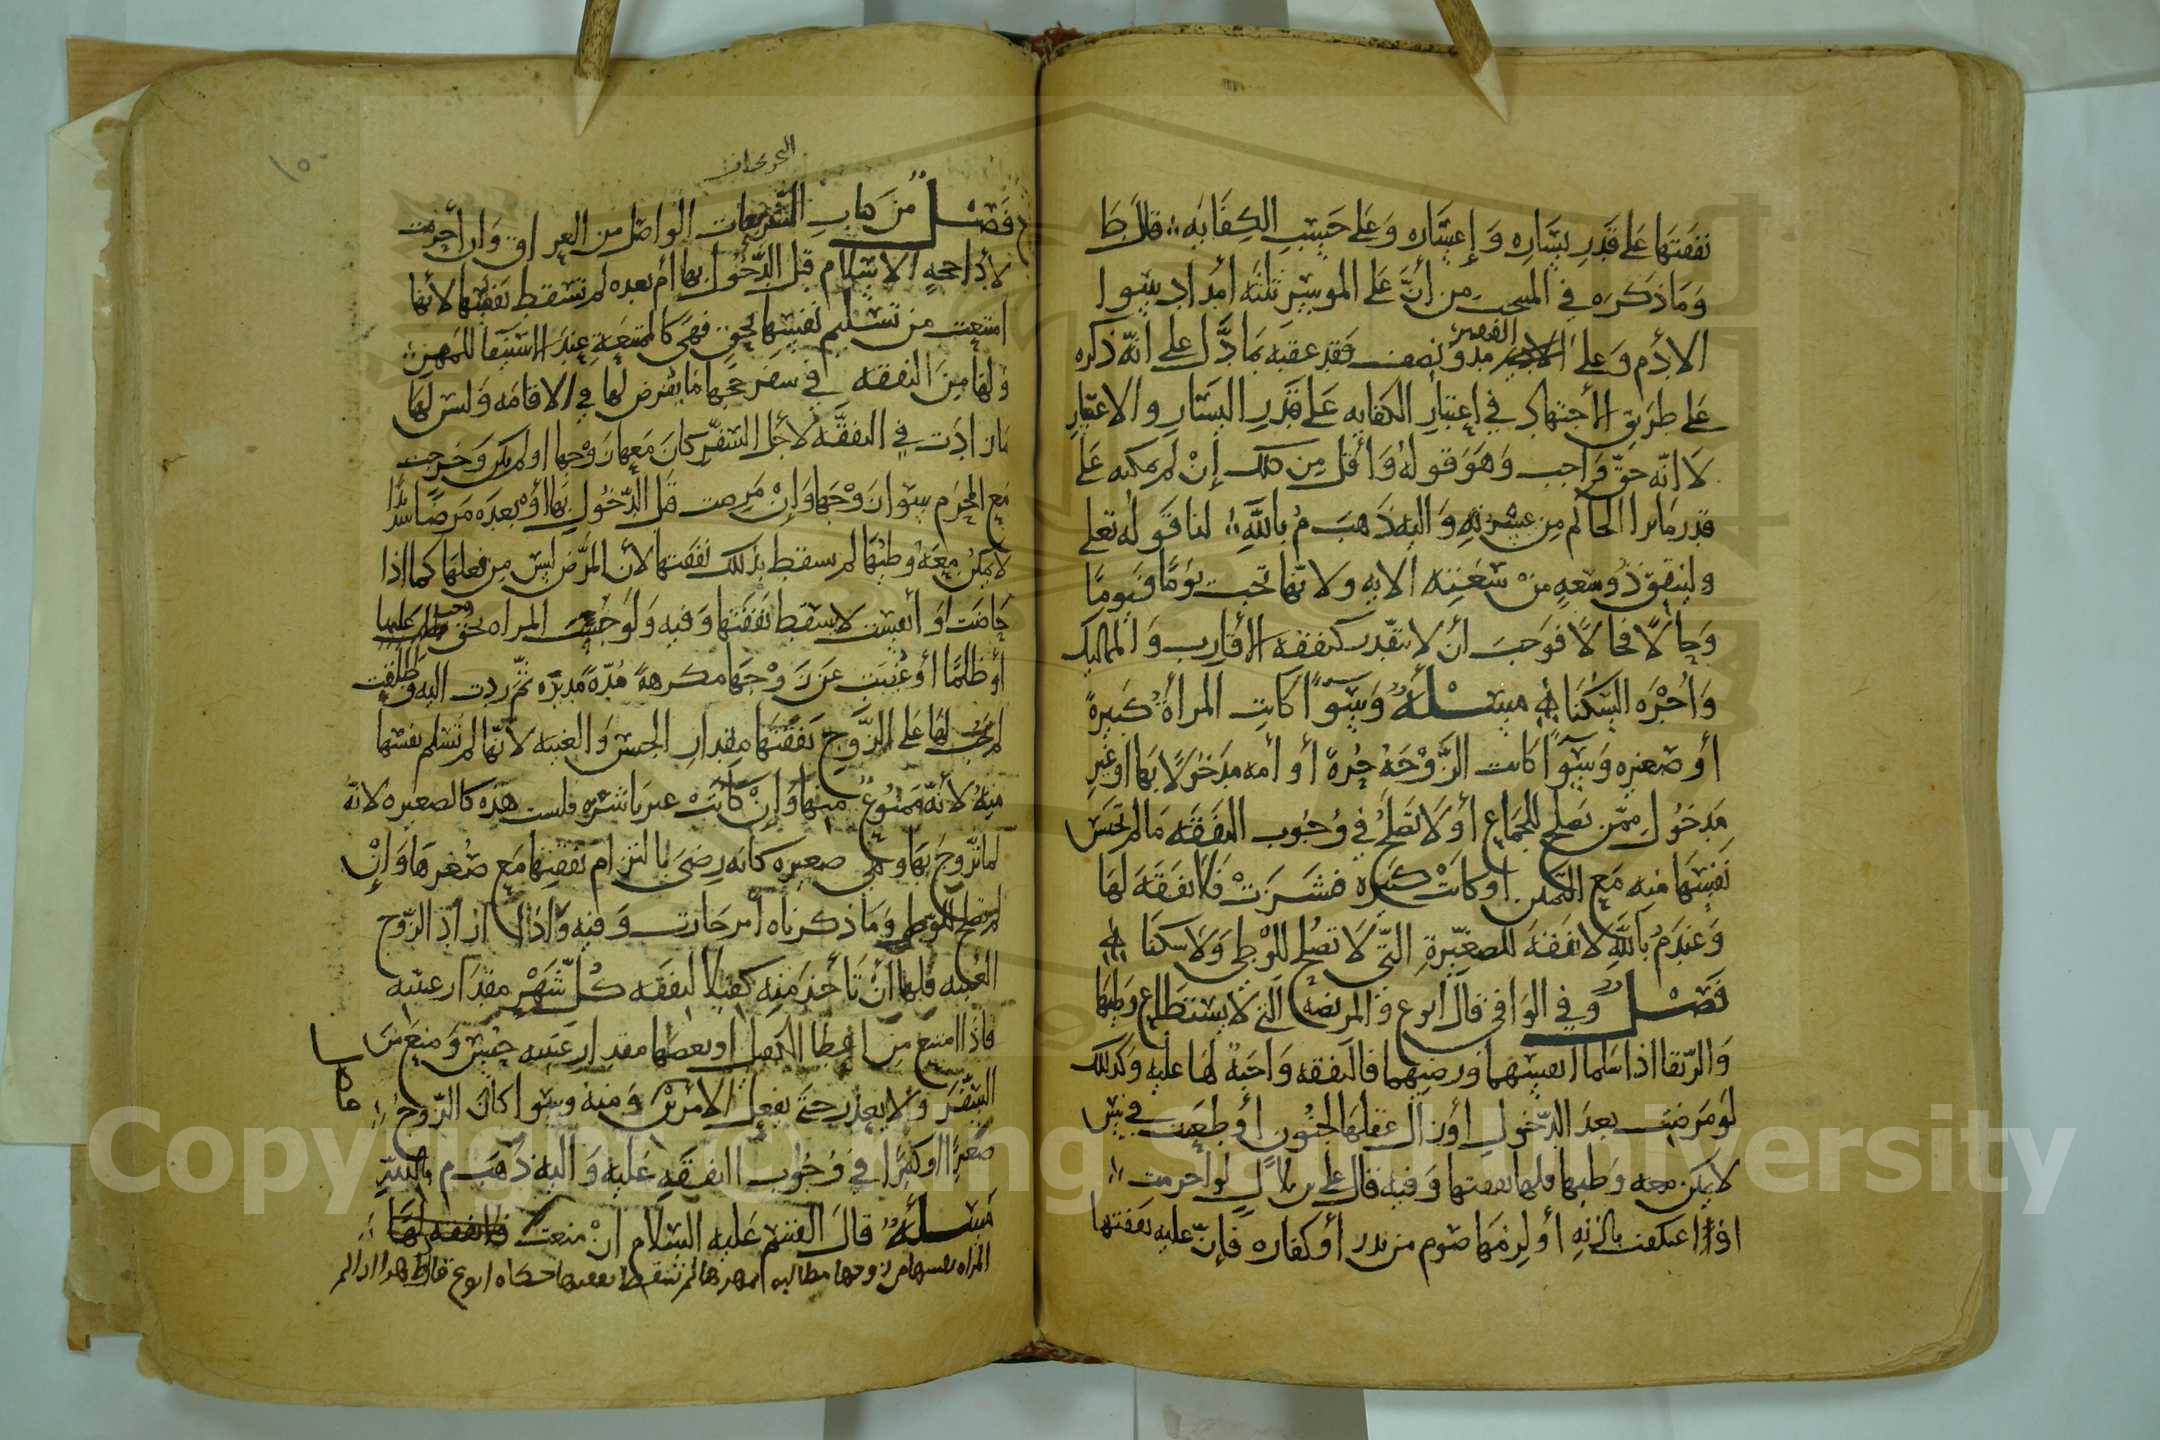 نفقتها على قدر يساره وإعساره وعلى حسب الكفاية قال ط
وما ذكره في المنتخب من أن على الموسر ثلثه أمداد سوا
الأدم وعلى الفقير مد ونصف فقد عقبه بما دل على انه ذكره
على طريق الاجتهاد في إعتبار الكفايه على قدر اليسار والاعسار
لا انه حق واجب وهو قوله وأقل من ذلك إن لم يمكنه على
قدر ما يرا الحاكم من عشرته واليه ذهب م بالله لنا قوله تعلى
ولينفق ذو سعه من سعته الايه ولانها تجب يوما فيوما
وحالا فحالا فوجب أن لا تتقدر كنفقه الأقارب والمماليك
وأجره السكنا مسلة وسوا كانت المرأة كبيرة
أو صغيره وسوا كانت الزوجه حرة أو أمه مدخولا بها او غير
مدخول ممن تصلح للجماع أو لا تصلح في وجوب النفقه ما لم تحبس
نفسها منه مع التمكن او كانت كبيره فنشزت فلا نفقه لها
وعند م بالله لا نفقه للصغيرة التي لا تصلح للوطي ولا سكنا
فصل وفي الوافي قال ابو ع والمريضه التي لا يستطاع وطيها
والرتقا اذا سلما انفسهما ورضيهما فالنفقه واجبة لها عليه وكذلك
لو مرضت بعد الدخول أو زال عقلها لجنون أو طعنت في سن
لا يمكن معه وطيها فلها نفقتها وفيه قال علي بن بلال لو احرمت
اذا اعتكفت باذنه أو لزمها صوم من نذر أو كفاره فإن عليه نفقتها
١٥٠
فصل من كتاب التفريعات الواصل من العراق وان أحرمت
لأداء حجه الاسلام قبل الدخول بها أم بعده لم تسقط نفقتها لأنها
امتنعت من تسليم نفسها بحق فهي كالممتنعة عند استيفا للمهر
ولها من النفقه في سفر حجها ما يفرض لها في الاقامه وليس لها
ما زادت في النفقه لأجل السفر كان معها زوجها او لم يكن وخرجت
مع المحرم سوا زوجها وإن مرضت قبل الدخول بها أو بعده مرضا
لا يمكن معه وطئها لم يسقط بذلك نفقتها لأن المرض ليس من فعلها كما اذا
حاضت او أنفست لا تسقط نفقتها وفيه ولو حبست المراه بحق وجب عليها
أو ظلما أو غيبت عن زوجها مكرهة مدة مديده ثم ردت اليه وطلقت
لم يجب لها على الزوج نفقتها مقدار الحبس والغيبه لانها لم تسلم نفسها
منه لأنه ممنوع منها وإن كانت غير ناشزه فليست هذه كالصغيره لانه
لما تزوج بها وهي صغيره كانه رضي بالتزام نفقتها مع صغرها وإن
لم تصلح للوطي وما ذكرناه امر حادث وفيه واذا اراد الزوج
الغيبه فلها أن تأخذ منه كفيلا لنفقه كل شهر مقدار غيبته
فاذا امتنع من اعطا الكفيل او يعطها مقدار غيبته حبس ومنع من
السفر ولا يعذر حتى يفعل الامرين ومنه وسوا كان الزوج
صغيرا او كبيرا في وجوب النفقه عليه واليه ذهب م بالله
مسلة قال القسم عليه السلام ان منعت
المراه نفسها من زوجها مطالبه بمهرها لم تسقط نفقتها حكاه ابو ع قال ط هذا اذا لم
Copyright © King Saud University